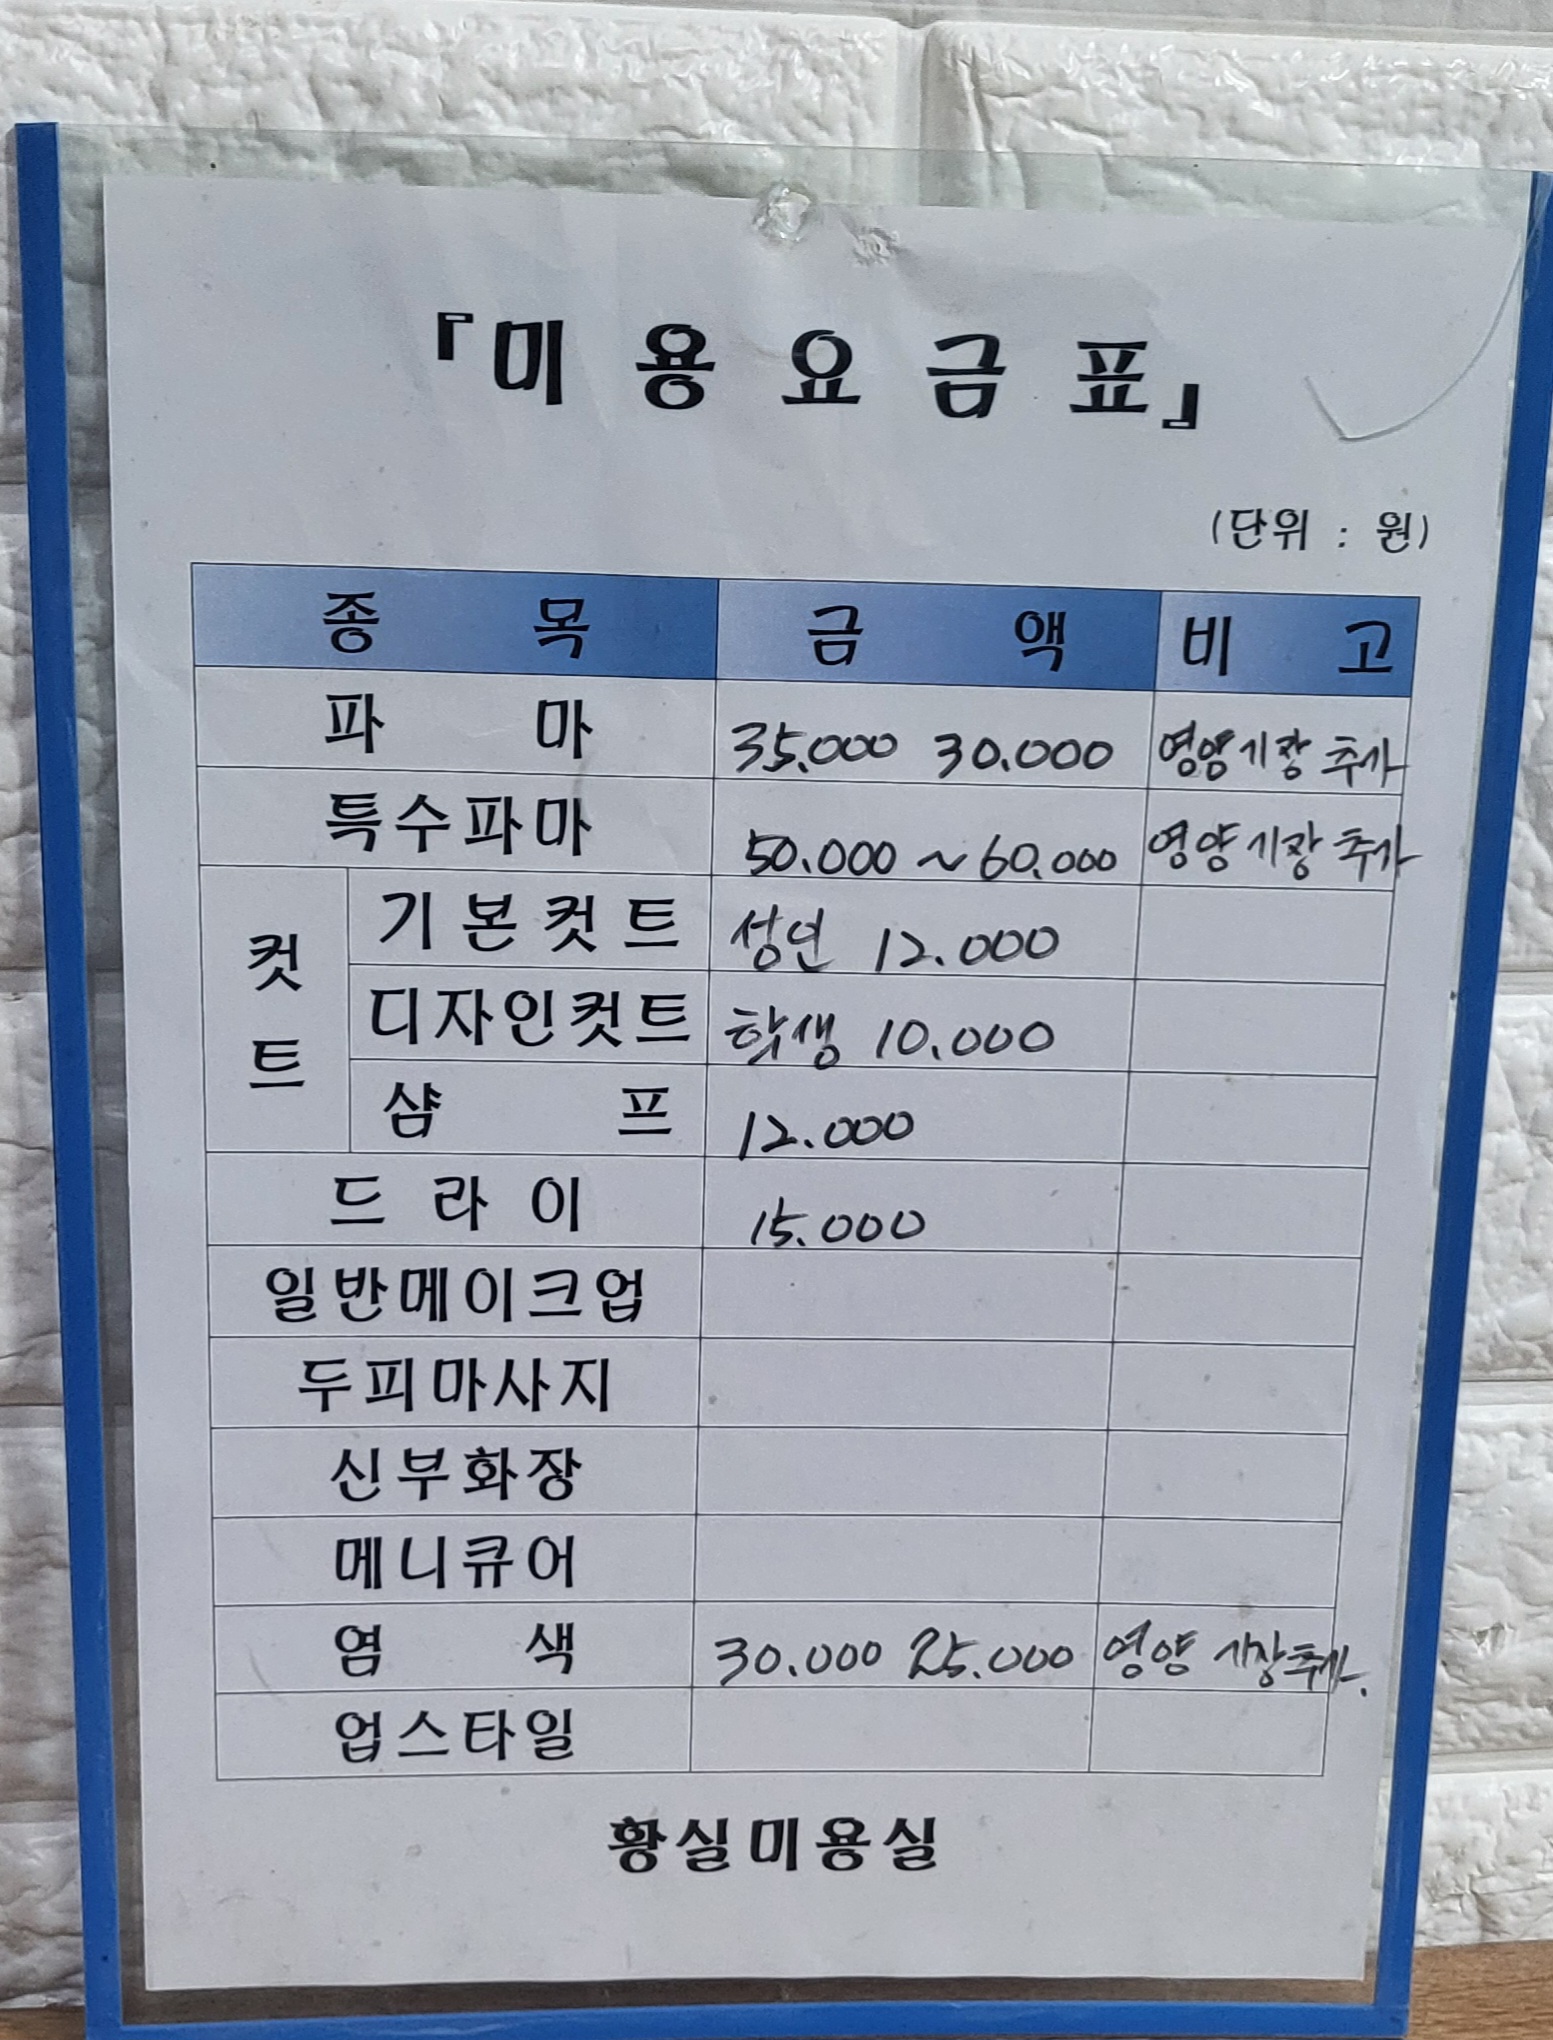 『미용요금표』
(단위 : 원)
종목 금액 비고
파마 35.000 30.000 영양시장 추가
특수파마 50.000 ~ 60.000 영양시장 추가
컷트 기본컷트 성인 12.000
디자인컷트 학생 10.000
샴프 12.000
드라이 15.000
일반메이크업
두피마사지
신부화장
메니큐어
염색 30.000 25.000 영양 시장추가.
업스타일
황실미용실